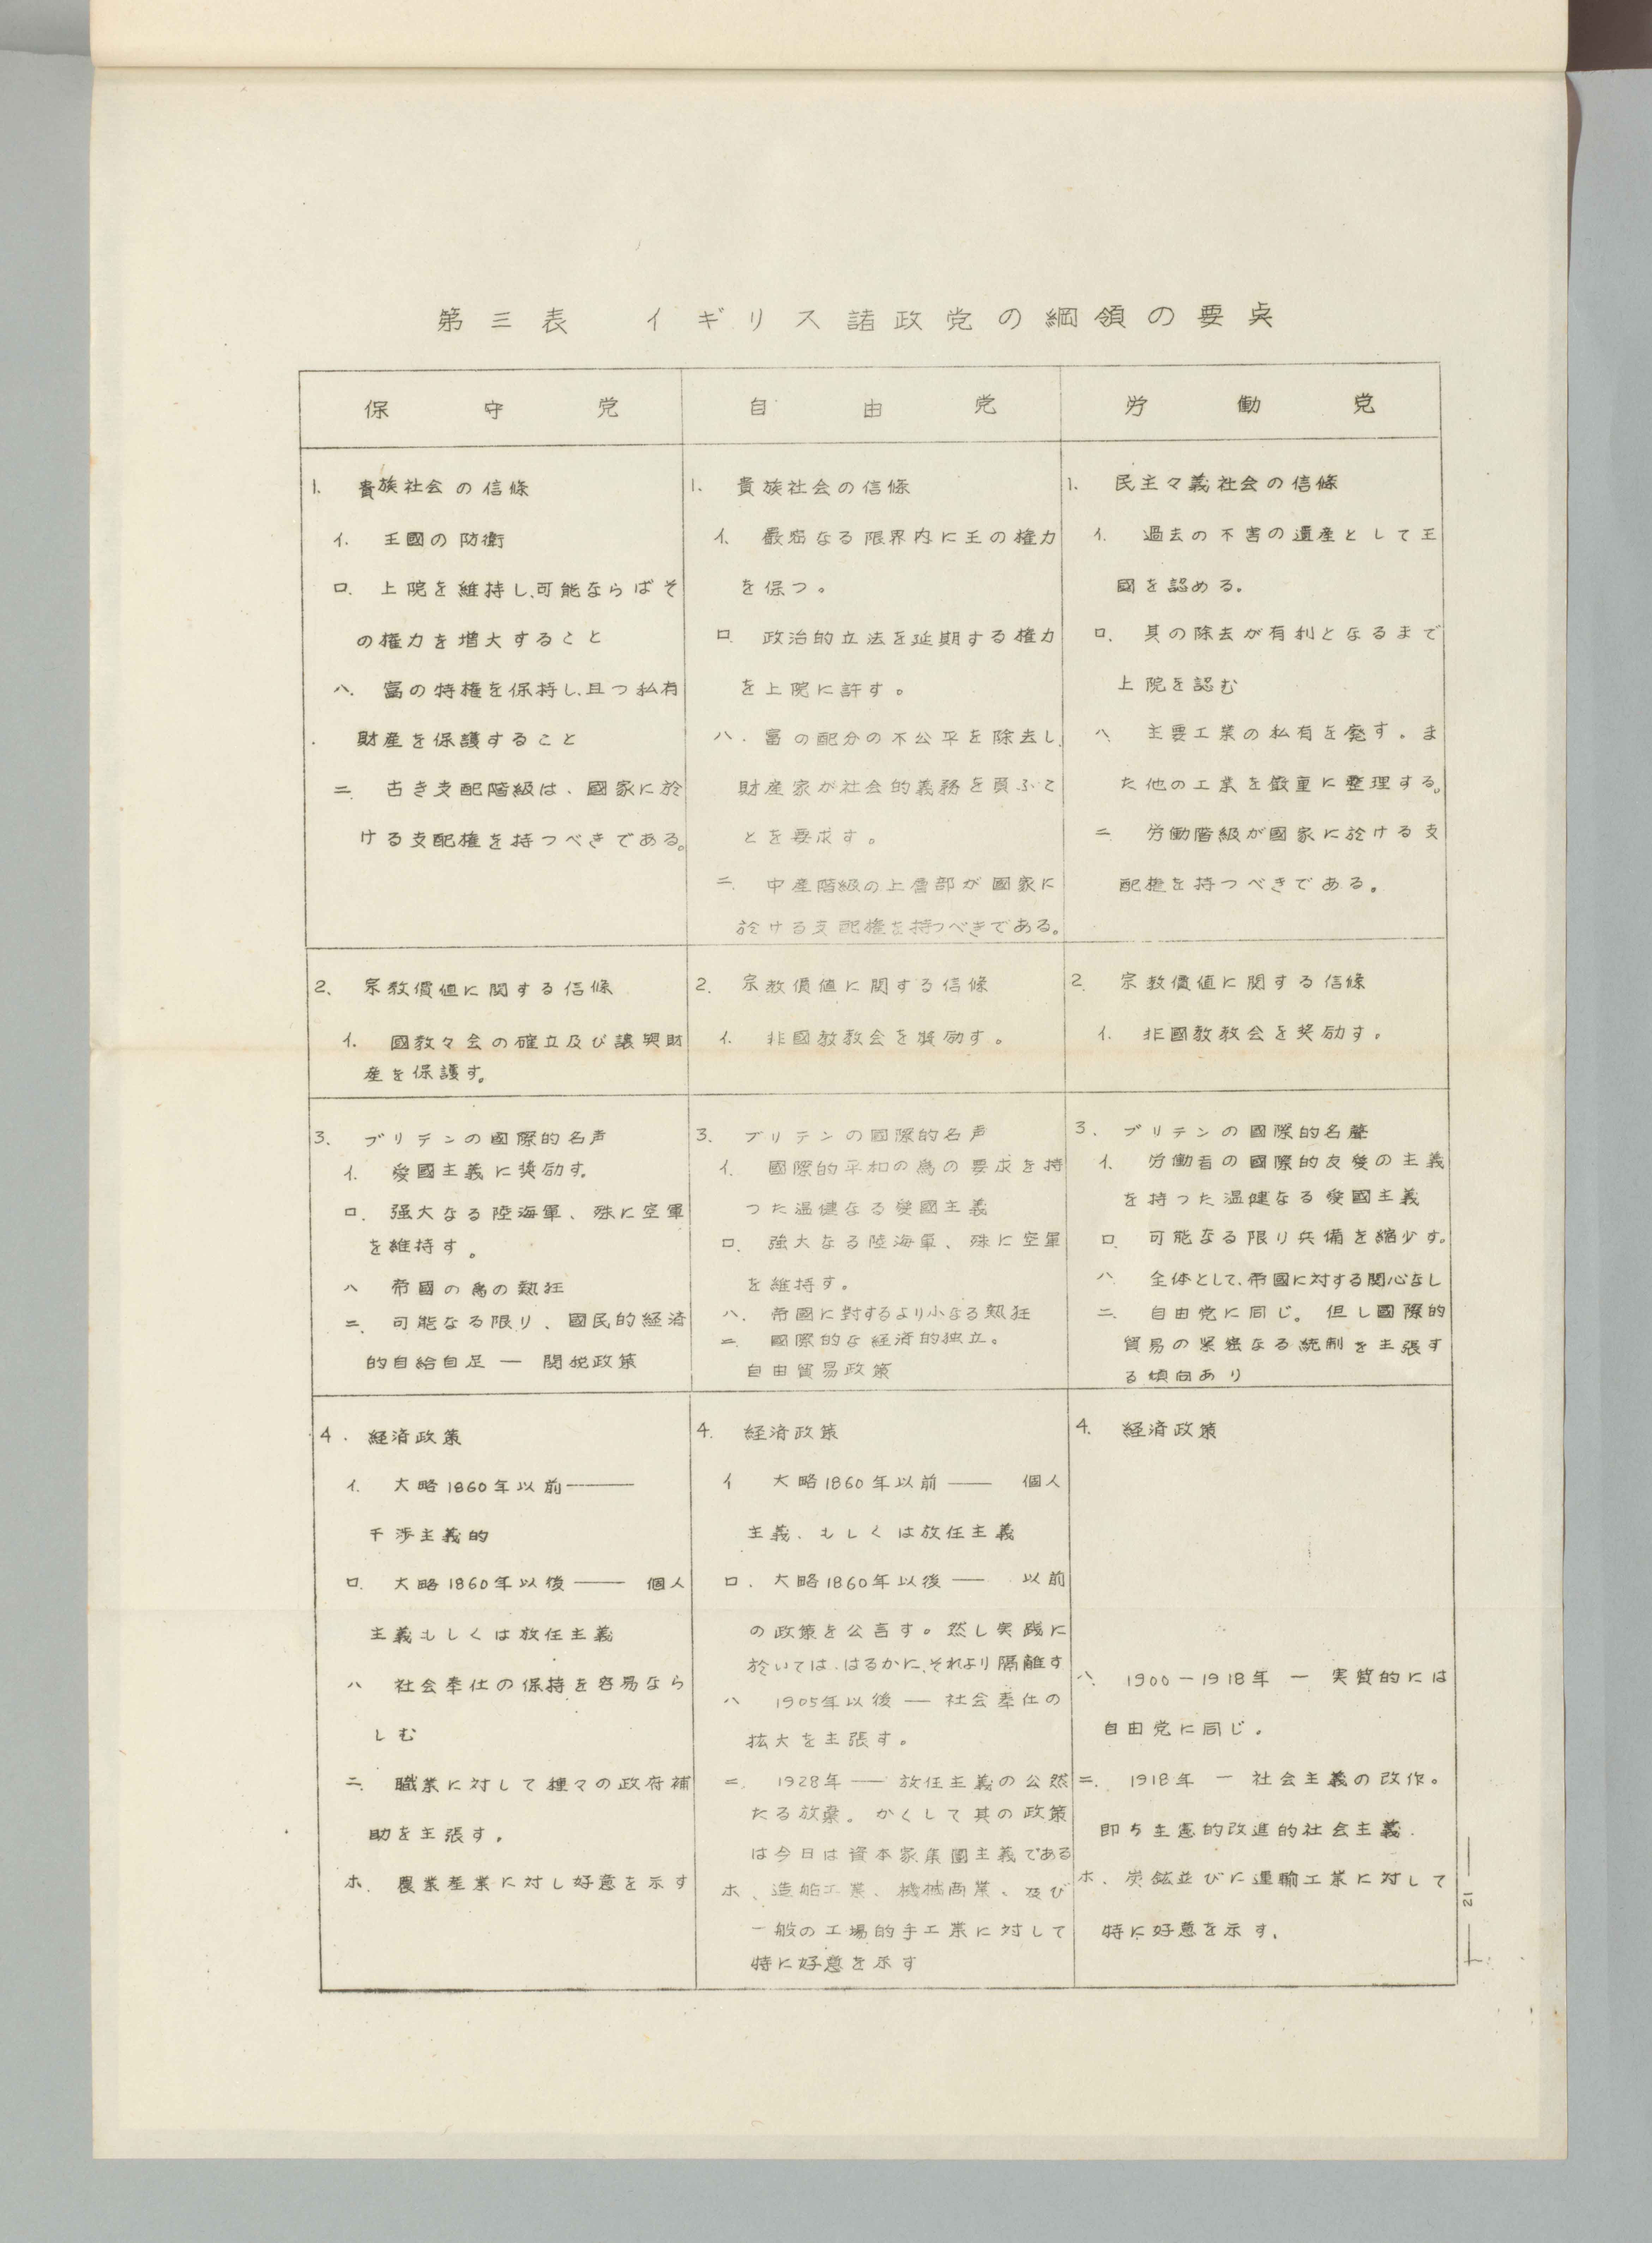 第三表 イギリス諸政党の綱領の要点
保守党
自由党
労働党
1. 貴族社会の信條
イ. 王國の防衛
ロ. 上院を維持し、可能ならばそ
の権力を増大すること
ハ. 富の特権を保持し、且つ私有
財産を保護すること
ニ. 古き支配階級は、國家に於
ける支配権を持つべきである。
1. 貴族社会の信條
イ. 厳密なる限界内に王の権力
を保つ。
ロ. 政治的立法を延期する権力
を上院に許す。
ハ. 富の配分の不公平を除去し、
財産家が社会的義務を負ふこ
とを要求す。
ニ. 中産階級の上層部が國家に
於ける支配権を持つべきである。
1. 民主々義社会の信條
イ. 過去の不害の遺産として王
國を認める。
ロ. 其の除去が有利となるまで
上院を認む
ハ. 主要工業の私有を廃す。ま
た他の工業を厳重に整理する。
ニ. 労働階級が國家に於ける支
配権を持つべきである。
2. 宗教價値に関する信條
イ. 國教々会の確立及び譲與財
産を保護す。
2. 宗教價値に関する信條
イ. 非國教教会を奬励す。
2. 宗教價値に関する信條
イ. 非國教教会を奖励す。
3. ブリテンの國際的名声
イ. 愛國主義に奨励す。
ロ. 强大なる陸海軍、殊に空軍
を維持す。
ハ 帝國の為の熱狂
ニ. 可能なる限り、國民的経済
的自給自足 ― 関税政策
3. ブリテンの國際的名声
イ. 國際的平和の為の要求を持
つた温健なる愛國主義
ロ. 強大なる陸海軍、殊に空軍
を維持す。
ハ. 帝國に對するより小なる熱狂
ニ. 國際的な経済的独立。
自由貿易政策
3. ブリテンの國際的名聲
イ. 労働者の國際的友愛の主義
を持つた温健なる愛國主義
ロ. 可能なる限り兵備を縮少す。
ハ. 全体として、帝國に対する関心なし
ニ. 自由党に同じ。但し國際的
貿易の緊密なる統制を主張す
る傾向あり
4. 経済政策
イ. 大略1860年以前――
干渉主義的
ロ. 大略1860年以後―― 個人
主義もしくは放任主義
ハ 社会奉仕の保持を容易なら
しむ
ニ. 職業に対して種々の政府補
助を主張す。
ホ. 農業産業に対し好意を示す
4. 経済政策
イ 大略1860年以前―― 個人
主義、もしくは放任主義
ロ. 大略1860年以後―― 以前
の政策を公言す。然し実践に
於いては、はるかに、それより隔離す
ハ 1905年以後 ― 社会奉仕の
拡大を主張す。
ニ. 1928年 ―― 放任主義の公然
たる放棄。かくして其の政策
は今日は資本家集團主義である
ホ、造船工業、機械商業、及び
一般の工場的手工業に対して
特に好意を示す
4. 経済政策
ハ. 1900－1918年 ― 実質的には
自由党に同じ。
ニ. 1918年 ― 社会主義の改作。
即ち主憲的改進的社会主義.
ホ. 炭鉱並びに運輸工業に対して
特に好意を示す。
― 21 ―